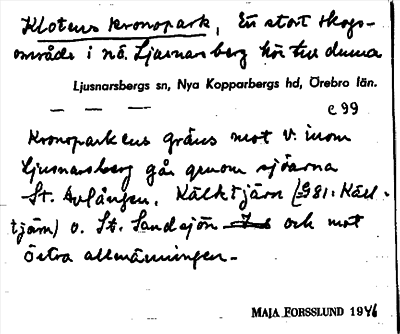 Klotens kronopark, Ett stort skogs-
område i nö. Ljusnarsberg hör till denna
Ljusnarsbergs sn, Nya Kopparbergs hd, Örebro län.
— — — c 99
Kronoparkens gräns mot v. inom
Ljusnarsberg går genom sjöarna
St. Avlången, Kälktjärn (G81: Käll-
tjärn) o. St. Sandsjön och mot
Östra allmänningen.
MAJA FORSSLUND 1946